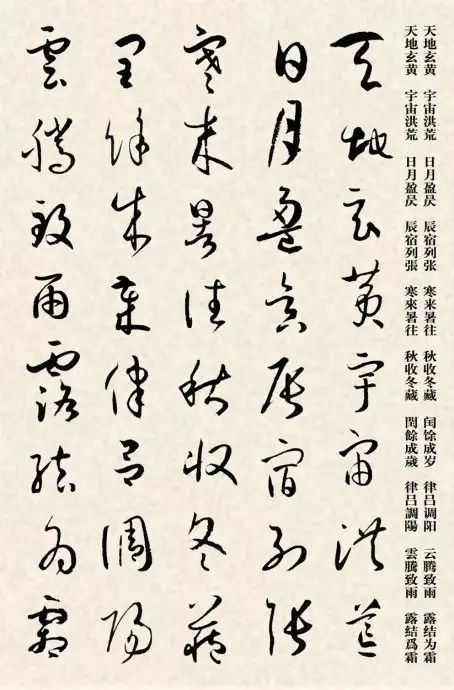 天地玄黄 宇宙洪荒 日月盈昃 辰宿列张 寒来暑往 秋收冬藏 闰馀成岁 律吕调阳 云腾致雨 露结为霜
天地玄黃 宇宙洪荒 日月盈昃 辰宿列張 寒來暑往 秋收冬藏 閏餘成歲 律呂調陽 雲騰致雨 露結爲霜
天地玄黃宇宙洪荒
日月盈昃辰宿列張
寒來暑往秋收冬藏
閏餘成歲律呂調陽
雲騰致雨露結為霜